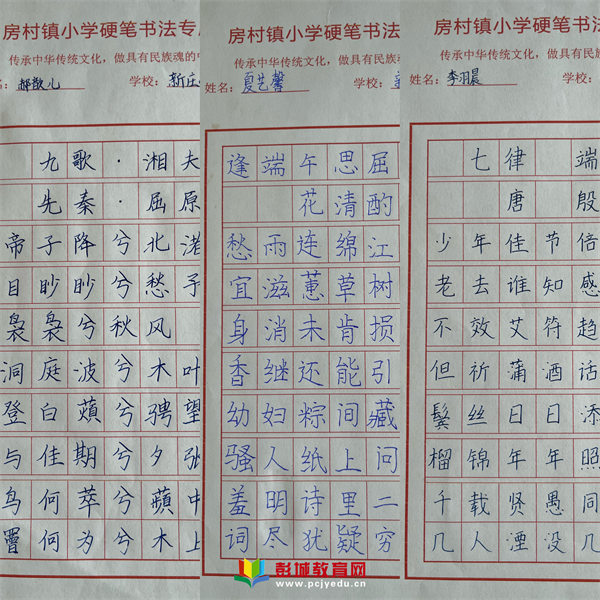 房村镇小学硬笔书法专用
传承中华传统文化，做具有民族魂的中
名：郝敬儿 学校：新庄
九歌·湘夫
先秦·屈原
帝子降兮北渚
目眇眇兮愁予
袅袅兮秋风
洞庭波兮木叶
登白薠兮骋望
与佳期兮夕张
鸟何萃兮蘋中
罾何为兮木上
房村镇小学硬笔书法
传承中华传统文化，做具有民族魂
姓名：夏艺馨
逢端午思屈
花清酌
愁雨连绵江
宜滋蕙草树
身消未肯损
香继还能引
幼妇粽间藏
骚人纸上问
羞明诗里二
词尽犹疑穷
房村镇小学硬笔书法
传承中华传统文化，做具有民族魂
姓名：李羽晨 学
七律 端
唐 殷
少年佳节倍
老去谁知感
不效艾符趋
但祈蒲酒话
鬓丝日日添
榴锦年年照
千载贤愚同
几人湮没几
彭城教育网
www.pcjyedu.cn